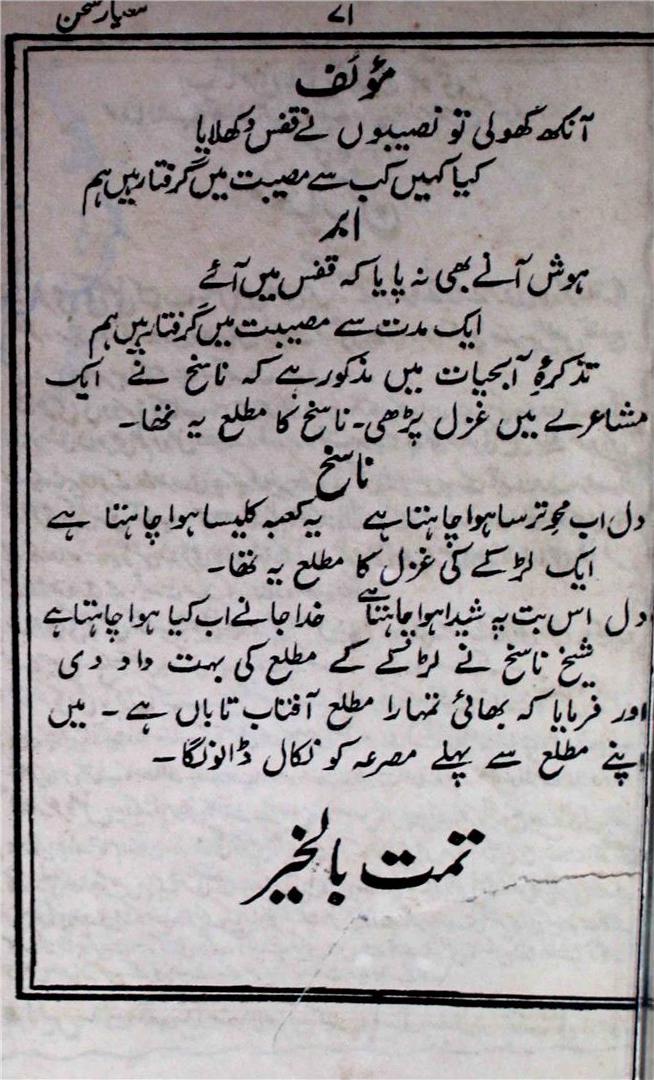 معیار سخن
۷۱
مؤلف
آنکھ کھولی تو نصیبوں نے قفس دکھلایا
کیا کہیں کب سے مصیبت میں گرفتار ہیں ہم
ابر
ہوش آنے بھی نہ پایا کہ قفس میں آئے
ایک مدت سے مصیبت میں گرفتار ہیں ہم
تذکرۂ آبحیات میں مذکور ہے کہ ناسخ نے ایک
مشاعرے میں غزل پڑھی۔ ناسخ کا مطلع یہ تھا۔
ناسخ
دل اب محوِ ترسا ہوا چاہتا ہے یہ کعبہ کلیسا ہوا چاہتا ہے
ایک لڑکے کی غزل کا مطلع یہ تھا۔
دل اس بت پہ شیدا ہوا چاہتا ہے خدا جانے اب کیا ہوا چاہتا ہے
شیخ ناسخ نے لڑکے کے مطلع کی بہت داد دی
اور فرمایا کہ بھائی تمہارا مطلع آفتاب تاباں ہے۔ میں
اپنے مطلع سے پہلے مصرعہ کو نکال ڈالونگا۔
تمت بالخیر